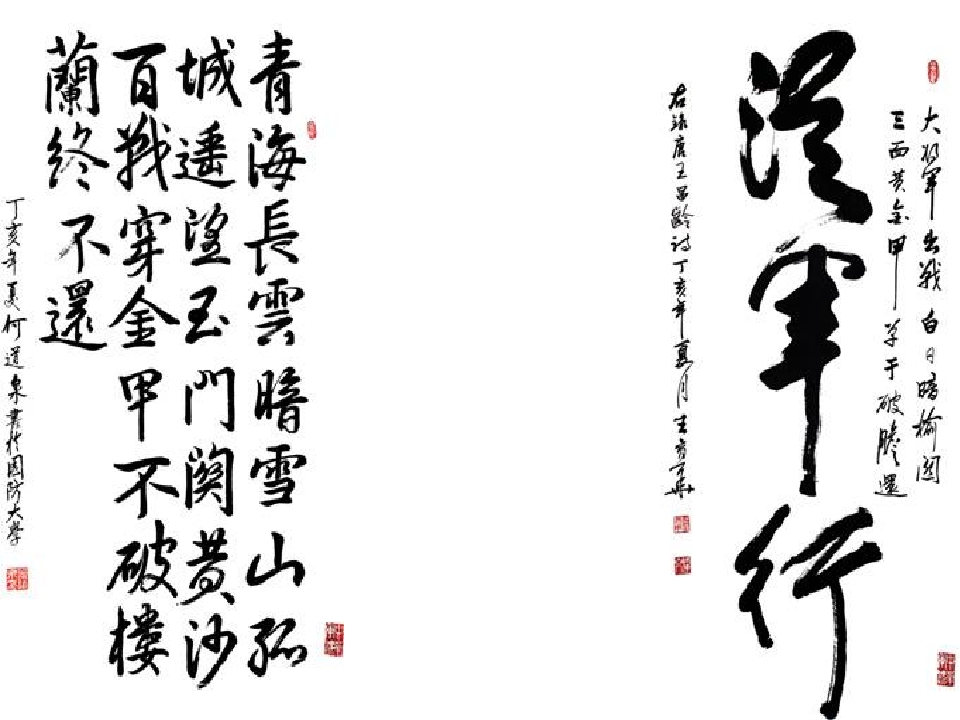 大将軍出戰白日暗榆関
三面黄金甲单于破膽還
從軍行
右錄唐王昌齡詩丁亥年夏月
青海長雲暗雪山孤
城遥望玉門関黄沙
百戰穿金甲不破樓
蘭終不還
丁亥年夏何道泉書於国防大學